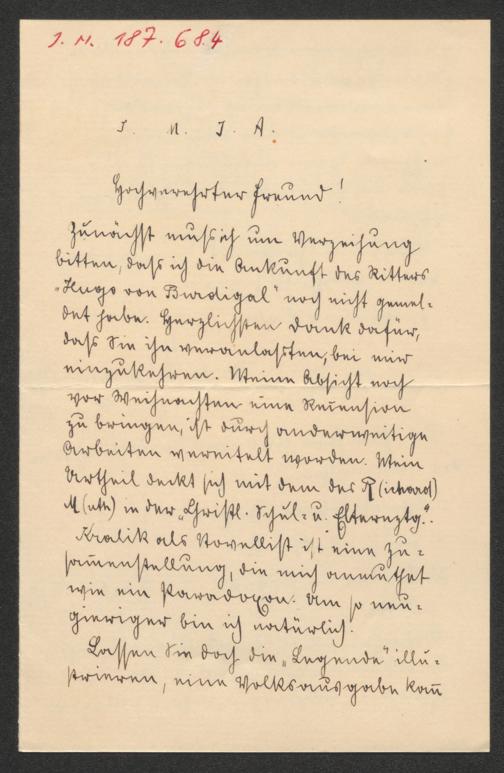 J. N. 187.684
J. M. J. A.
Hochverehrter Freund!
Zunächst muß ich um Verzeihung
bitten, daß ich die Ankunft des Ritters
„Hugo von Burdigal“ noch nicht gemel-
det habe. Herzlichsten Dank dafür,
daß Sie ihn veranlaßten, bei mir
einzukehren. Meine Absicht noch
vor Weihnachten eine Recension
zu bringen, ist durch anderweitige
Arbeiten vereitelt worden. Mein
Urtheil deckt sich mit dem des R(ichard)
M(uth) in der „Christl. Schul- u. Elternztg.“.
Kralik als Novellist ist eine Zu-
sam̅enstellung, die mich anmuthet
wie ein Paradoxon. Um so neu-
gieriger bin ich natürlich.
Lassen Sie doch die „Legende“ illu-
strieren, eine Volksausgabe kan̅